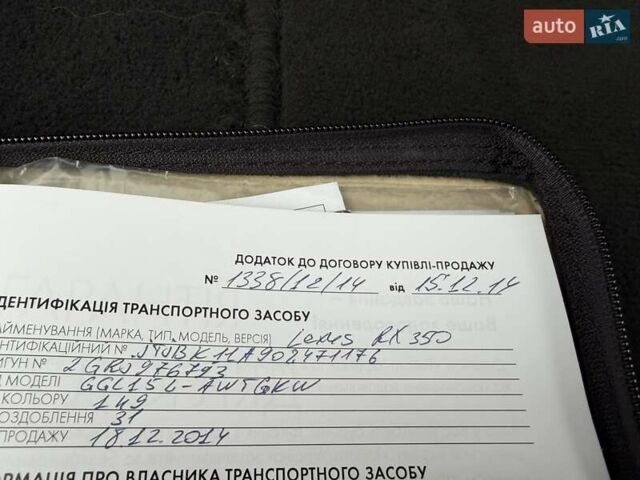 auto RIA.com
ДОДАТОК ДО ДОГОВОРУ КУПІВЛІ-ПРОДАЖУ
№ 1338/12/14 від 15.12.14
ДЕНТИФІКАЦІЯ ТРАНСПОРТНОГО ЗАСОБУ
АЙМЕНУВАННЯ (МАРКА, ТИП, МОДЕЛЬ, ВЕРСІЯ) Lexus RX 350
ЕНТИФІКАЦІЙНИЙ № JTJBK11A902471176
ИГУН № 2GRJ976793
Д МОДЕЛІ GGL15L-AWTGKW
КОЛЬОРУ 1H9
ОЗДОБЛЕННЯ 31
ПРОДАЖУ 18.12.2014
ОРМАЦІЯ ПРО ВЛАСНИКА ТРАНСПОРТНОГО ЗАСОБУ